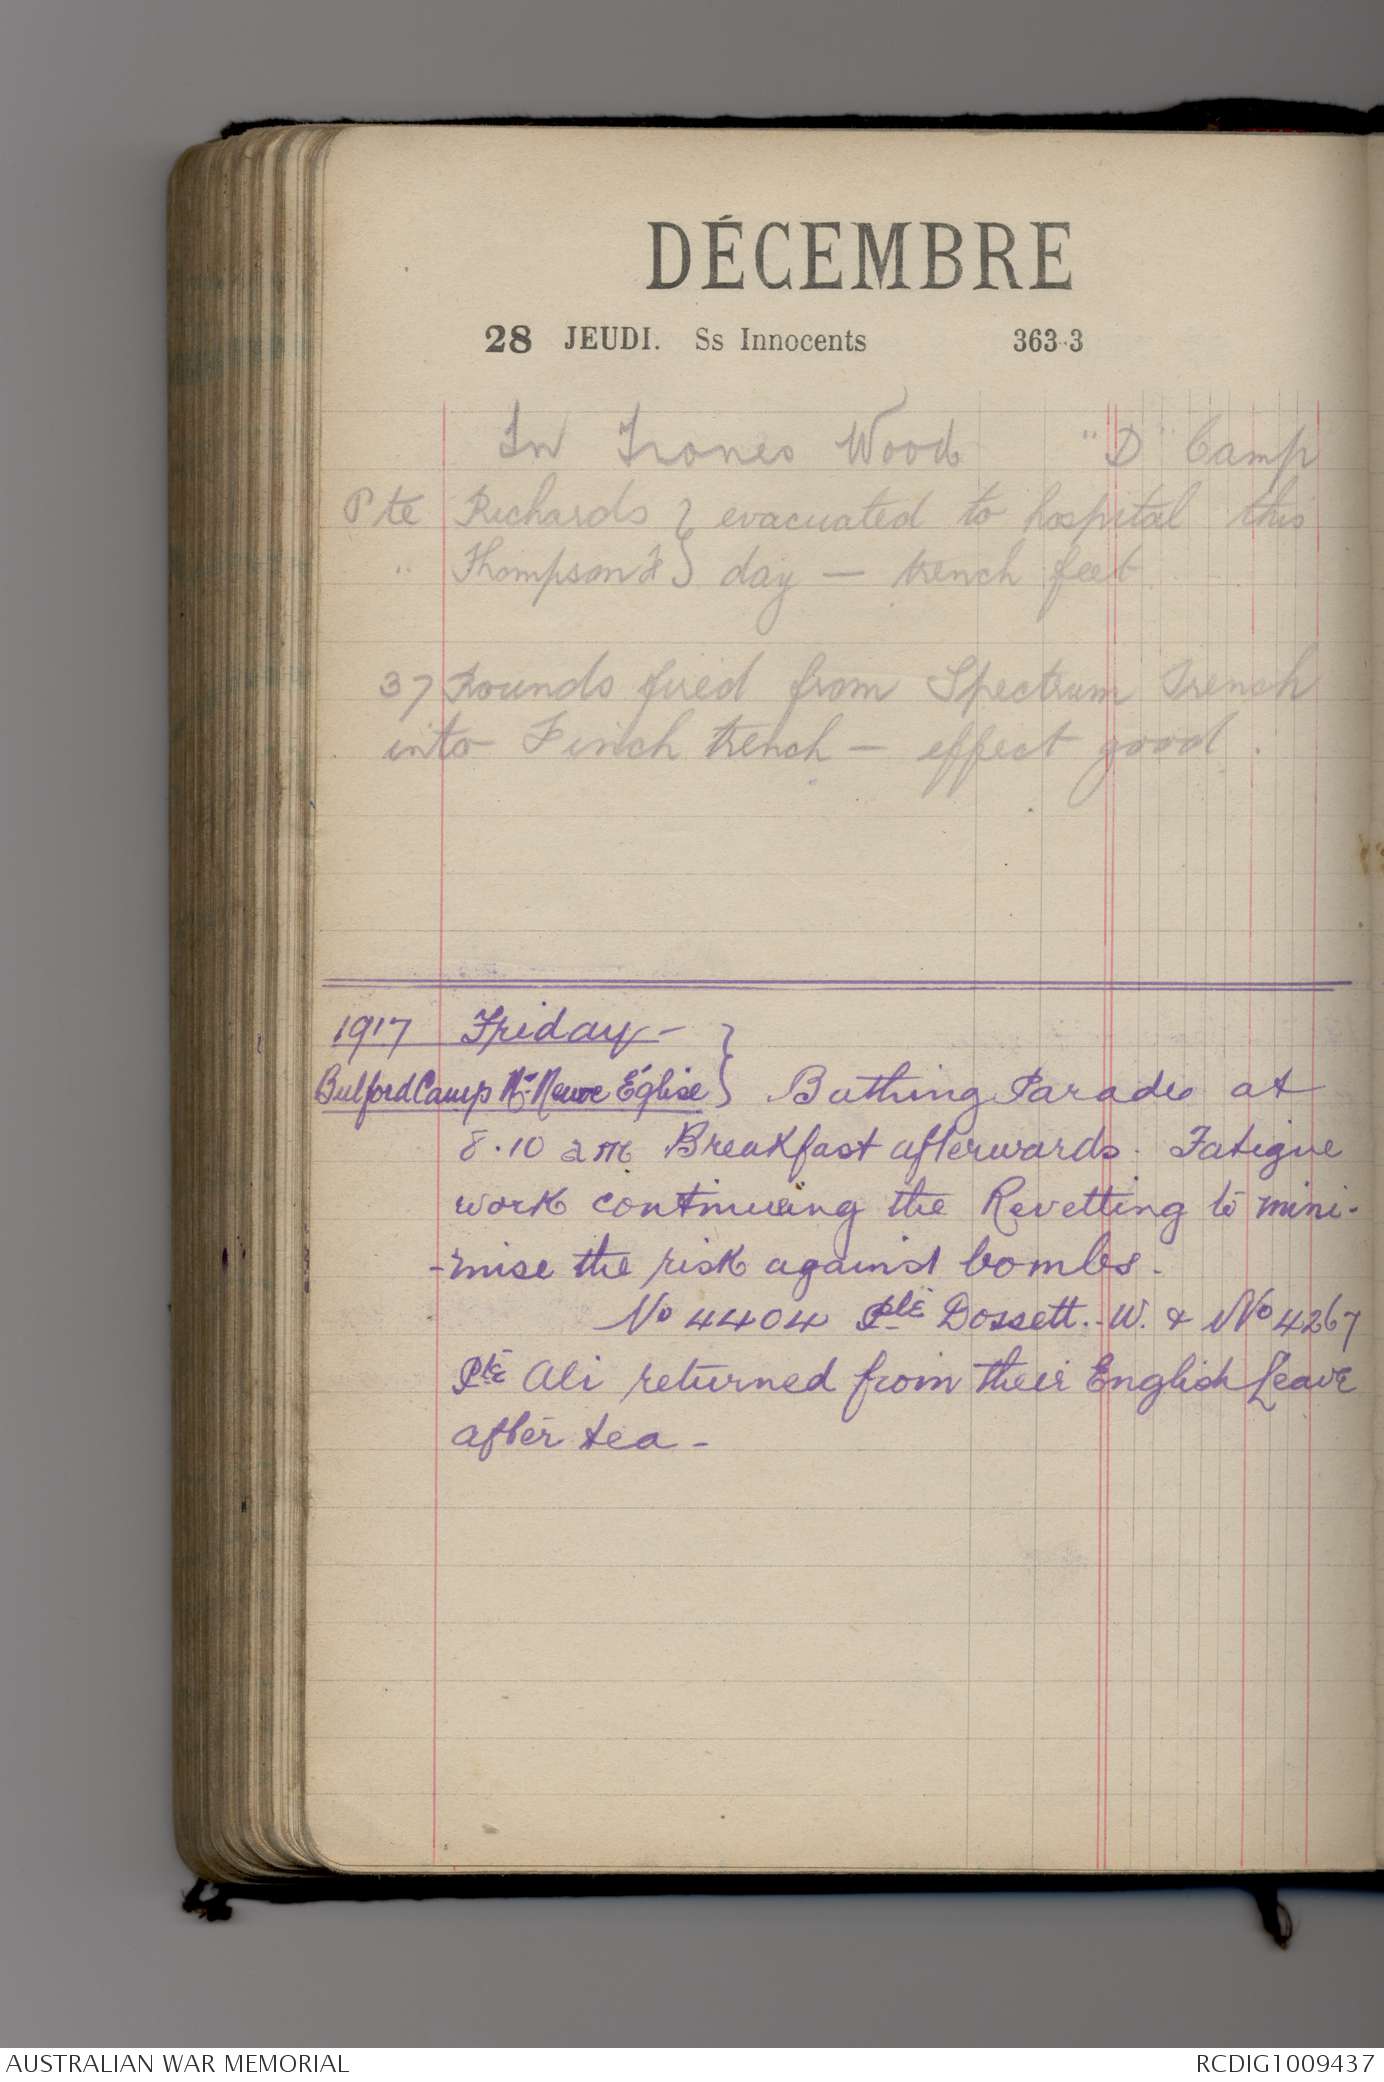 DÉCEMBRE
28 JEUDI. Ss Innocents 363-3
In Trones Wood "D" Camp
Pte Richards } evacuated to hospital this
" Thompson F } day — trench feet
37 Rounds fired from Spectrum Trench
into Finch trench — effect good.
1917 Friday —
Bulford Camp Nr. Neuve Église } Bathing Parade at
8.10 am Breakfast afterwards. Fatigue
work continuing the Revetting to mini-
-mise the risk against bombs.
No 4404 Pte Dossett. W. & No 4267
Pte Ali returned from their English Leave
after tea -
AUSTRALIAN WAR MEMORIAL RCDIG1009437